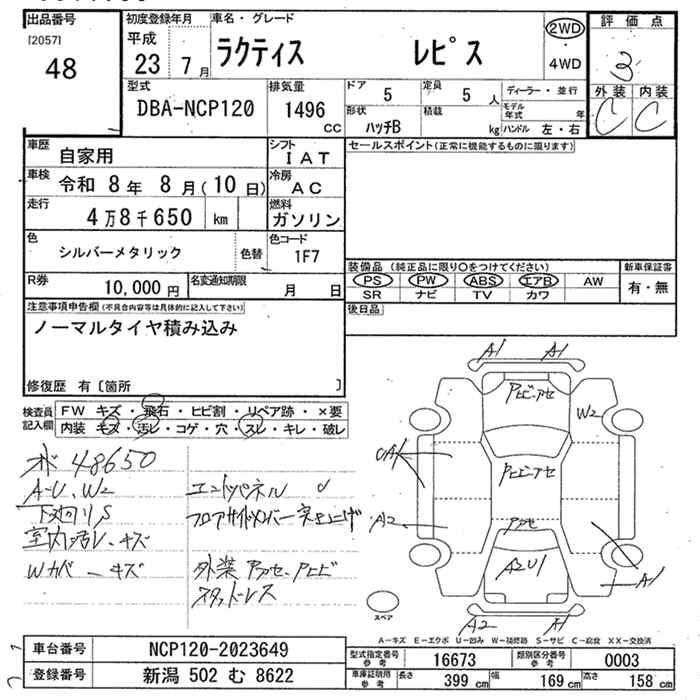 出品番号
[2057]
48
初度登録年月
平成
23 7 月
車名・グレード
ラクティス レピス
2WD
・
4WD
評価点
3
外装 内装
C C
型式
DBA-NCP120
排気量
1496
CC
ドア
5
定員
5 人
形状
ハッチB
積載
kg
ディーラー・並行
モデル年式 年
ハンドル 左・右
車歴
自家用
シフト
IAT
車検
令和 8 年 8 月 ( 10 日)
冷房
AC
走行
4 万 8 千 650 km
燃料
ガソリン
色
シルバーメタリック
色替
色コード
1F7
R券
10,000 円
名変通知期限
月 日
セールスポイント(正常に機能するものに限ります)
装備品 (純正品に限り〇をつけてください)
PS PW ABS エアB AW
SR ナビ TV カワ
新車保証書
有・無
後日品
注意事項申告欄(不具合内容等は具体的に記入して下さい)
ノーマルタイヤ積み込み
修復歴 有〔箇所 〕
検査員記入欄
FW キズ・飛石・ヒビ割・リペア跡・×要
内装 キズ・汚レ・コゲ・穴・スレ・キレ・破レ
48650
A-U、W2
下廻りS
室内汚レ、キズ
Wカバーキズ
エンドパネル U
フロアサイドメンバー突き上げ
外装
スタッドレス
A1 A1
W2
A2
A2U1
A1
A2 A1
スペア
A-キズ E-エクボ U-凹み W-補修跡 S-サビ C-腐食 XX-交換済
車台番号
NCP120-2023649
登録番号
新潟 502 む 8622
型式指定番号
参考
16673
類別区分番号
参考
0003
車庫証明用
参考
長さ
399 cm
幅
169 cm
高さ
158 cm